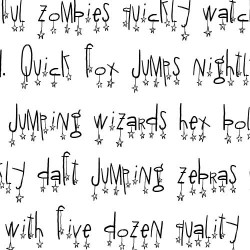 zombies quickly
. Quick fox jumps
jumping wizards hex
daft jumping zebras
with five dozen quality